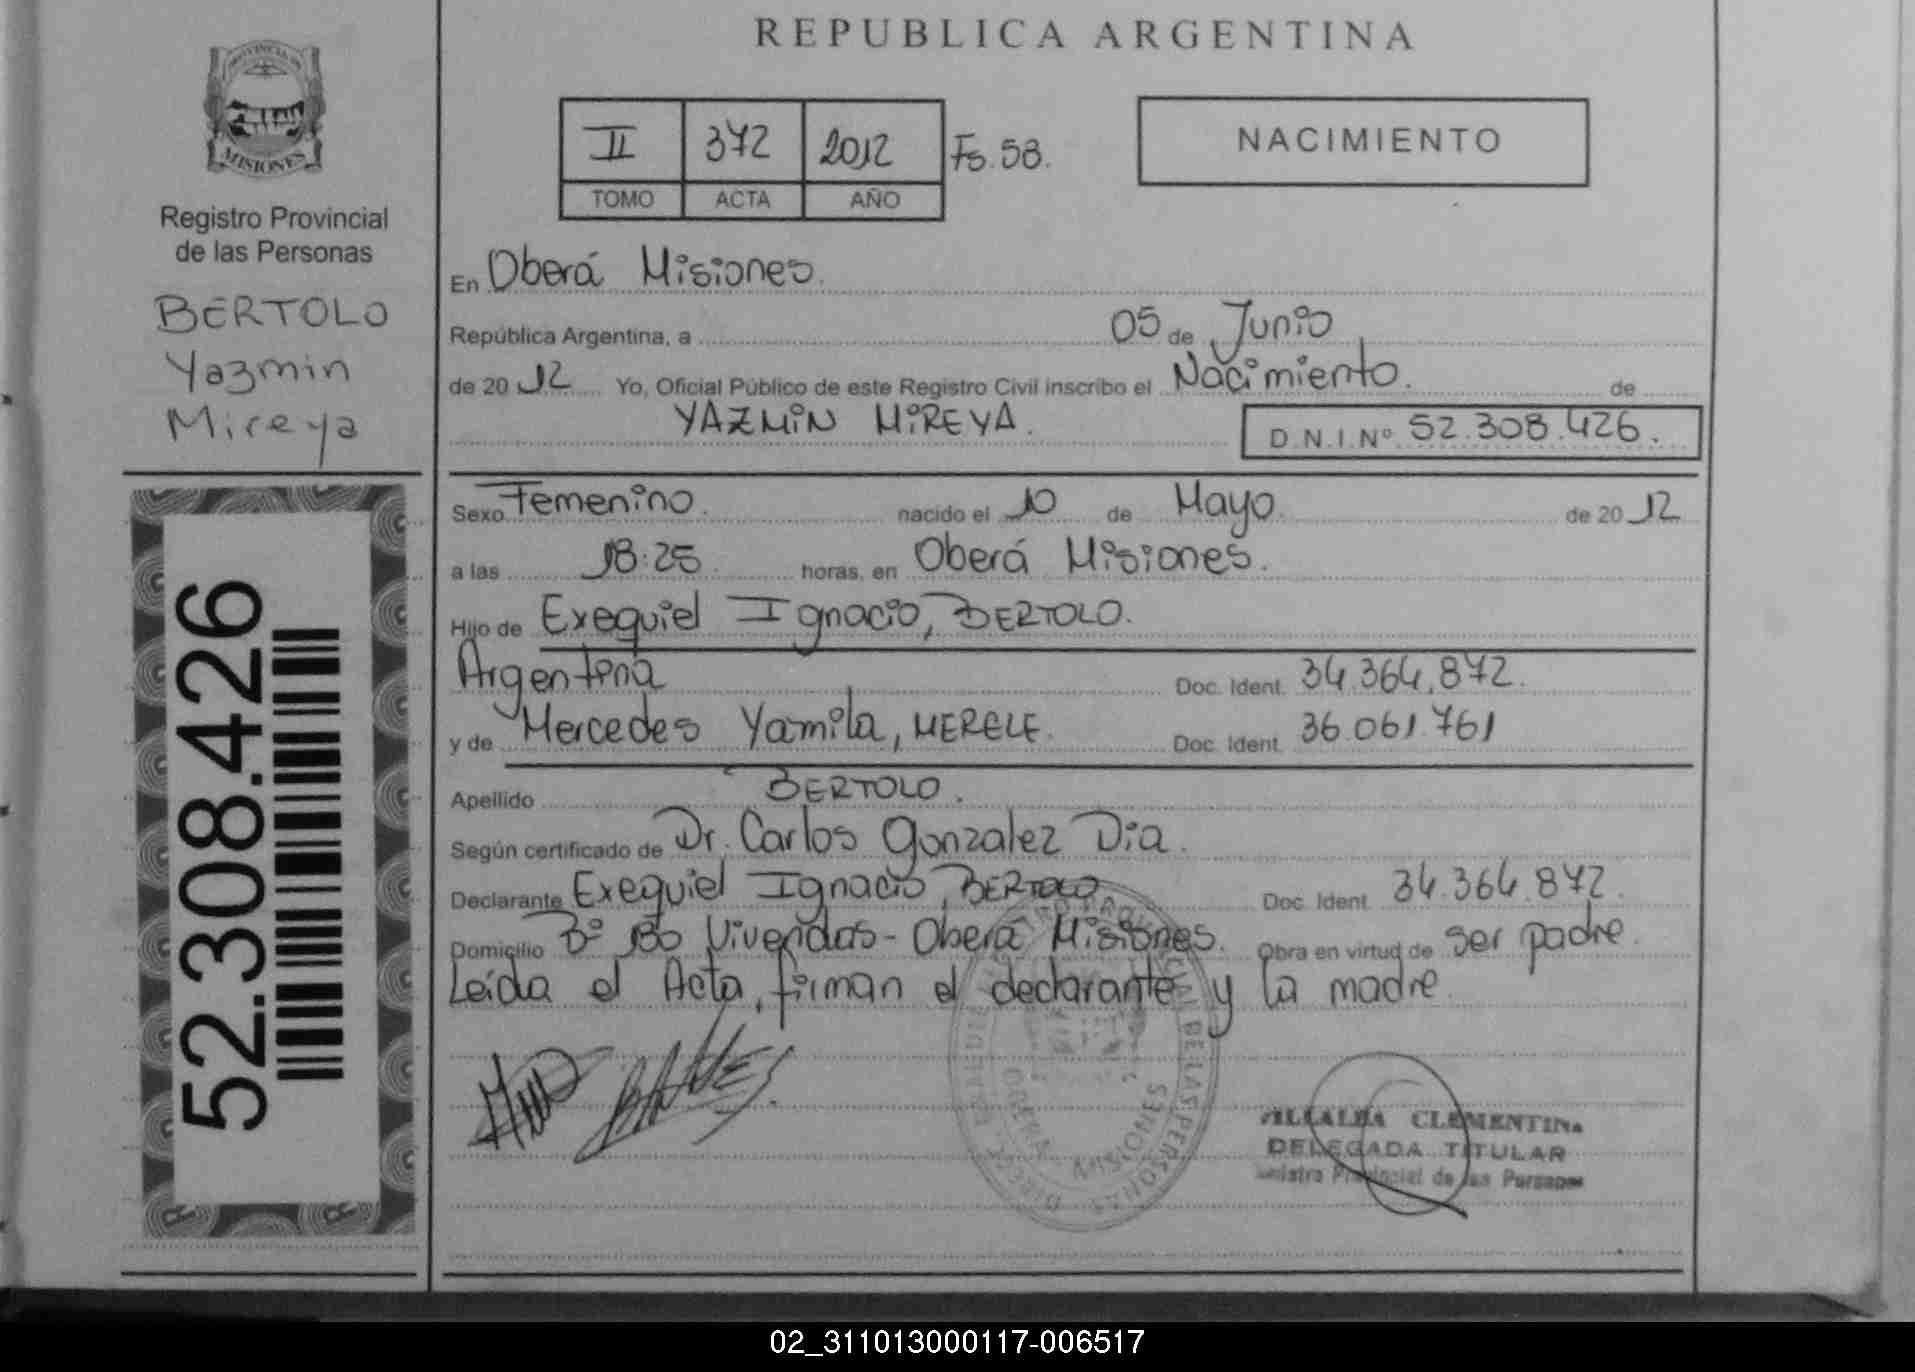 REPUBLICA ARGENTINA
PROVINCIA DE
MISIONES
Registro Provincial
de las Personas
BERTOLO
Yazmin
Mireya
52.308.426
II 372 2012 Fs. 58.
TOMO ACTA AÑO
NACIMIENTO
En Oberá Misiones.
República Argentina, a 05 de Junio
de 2012 Yo, Oficial Público de este Registro Civil inscribo el Nacimiento. de
YAZMIN MIREYA. D.N.I.Nº 52.308.426.
Sexo Femenino. nacido el 10 de Mayo. de 2012
a las 18:25. horas, en Oberá Misiones.
Hijo de Exequiel Ignacio, BERTOLO.
Argentina Doc. Ident. 34.364.872.
y de Mercedes Yamila, MERELE. Doc. Ident. 36.061.761
Apellido BERTOLO.
Según certificado de Dr. Carlos Gonzalez Dia.
Declarante Exequiel Ignacio, BERTOLO Doc. Ident. 34.364.872.
Domicilio Bº 180 Viviendas - Oberá Misiones. Obra en virtud de ser padre.
Leída el Acta, firman el declarante y la madre.
MISIONES
VILLALBA CLEMENTINA
DELEGADA TITULAR
Provincial de las Personas
02_311013000117-006517